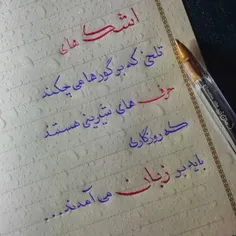 اشک های
تلخی که بر گورها می چکند
حرف های شیرینی هستند
که روزگاری
باید بر زبان می آمدند...